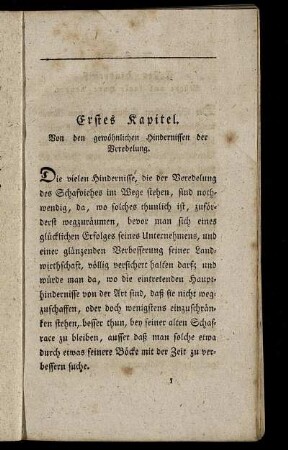 Erstes Kapitel.
Von den gewöhnlichen Hindernissen der
Veredelung.
Die vielen Hindernisse, die der Veredelung
des Schafviehes im Wege stehen, sind noth-
wendig, da, wo solches thunlich ist, zuför-
derst wegzuräumen, bevor man sich eines
glücklichen Erfolges seines Unternehmens, und
einer glänzenden Verbesserung seiner Land-
wirthschaft, völlig versichert halten darf; und
würde man da, wo die eintretenden Haupt-
hindernisse von der Art sind, daß sie nicht weg-
zuschaffen, oder doch wenigstens einzuschrän-
ken stehen, besser thun, bey seiner alten Schaf-
race zu bleiben, ausser daß man solche etwa
durch etwas feinere Böcke mit der Zeit zu ver-
bessern suche.
1